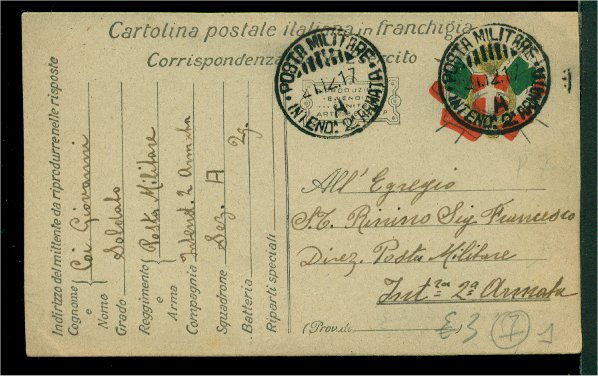 Cartolina postale italiana in franchigia
Corrispondenza
POSTA MILITARE
21.12.17
A
INTEND: 2ª ARMATA
POSTA MILITARE
21.12.17
A
INTEND: 2ª ARMATA
RIPRODUZ
VIETATA
Indirizzo del mittente da riprodurre nelle risposte
Cognome e Nome Coi Giovanni
Grado Soldato
Reggimento e Arma Posta Militare
Compagnia Intend. 2 Armata
Squadrone Sez. A
Batteria 2g.
Riparti speciali
All' Egregio
S.T. Rinino Sig. Francesco
Direz. Posta Militare
Int.za 2ª Armata
(Prov. di
3
7
1